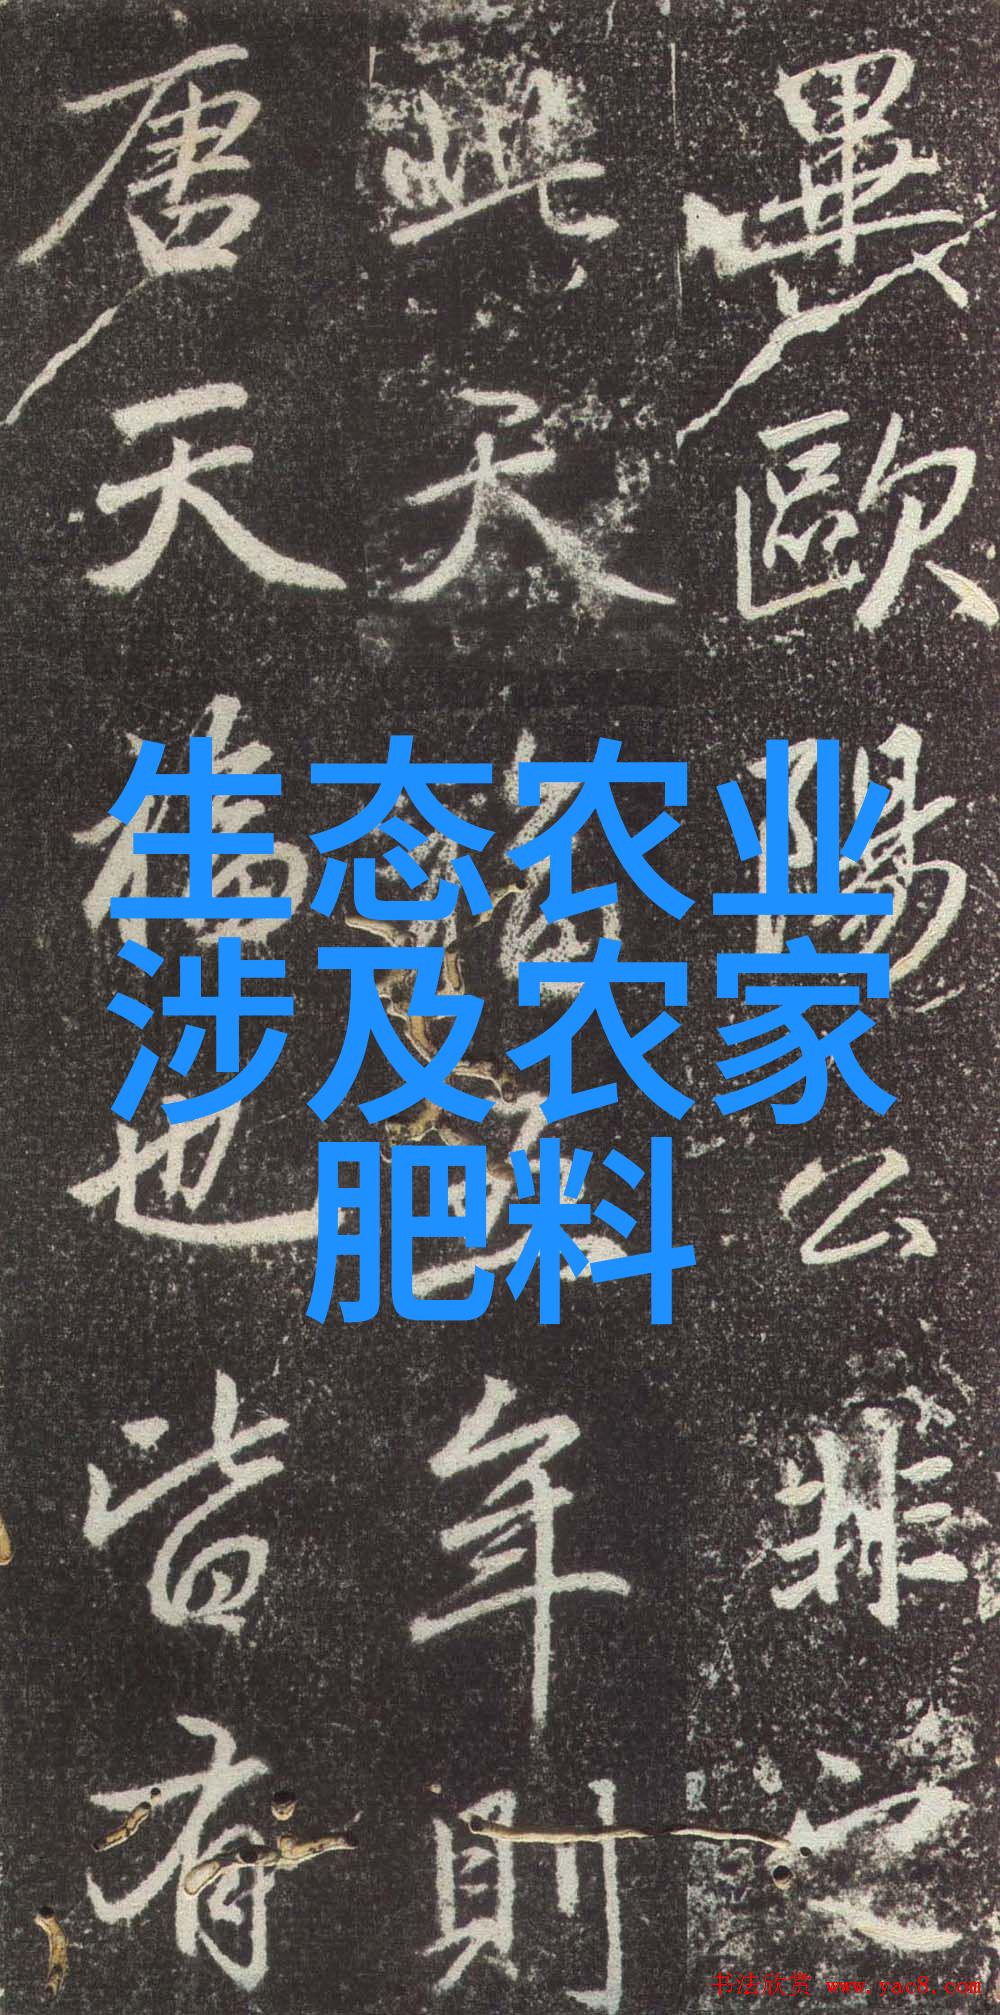 畢歐陽公非之
此天五年則
唐天也皆有
生态农业
涉及农家
肥料
书法欣赏 www.yac8.com